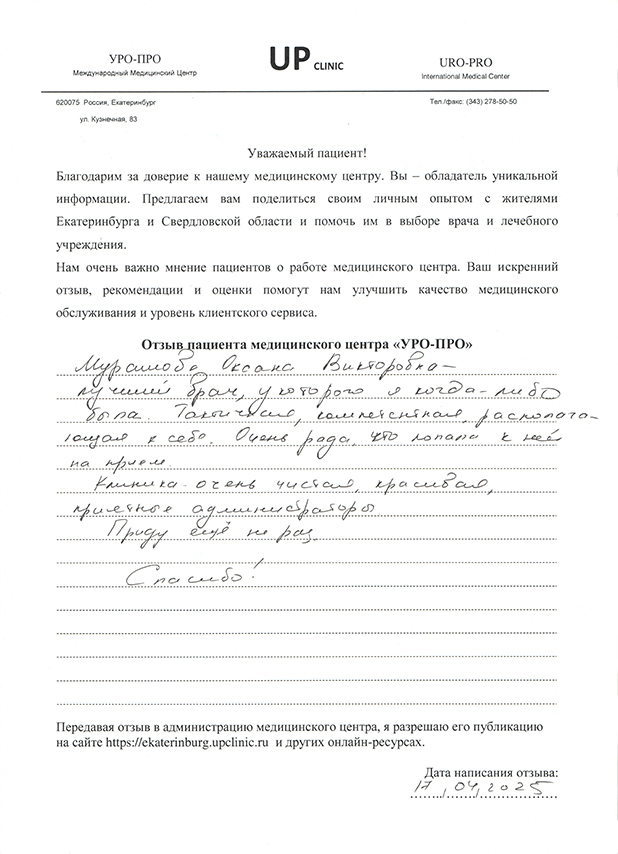 УРО-ПРО
Международный Медицинский Центр
UP CLINIC
URO-PRO
International Medical Center
620075 Россия, Екатеринбург
ул. Кузнечная, 83
Тел./факс: (343) 278-50-50
Уважаемый пациент!
Благодарим за доверие к нашему медицинскому центру. Вы – обладатель уникальной
информации. Предлагаем вам поделиться своим личным опытом с жителями
Екатеринбурга и Свердловской области и помочь им в выборе врача и лечебного
учреждения.
Нам очень важно мнение пациентов о работе медицинского центра. Ваш искренний
отзыв, рекомендации и оценки помогут нам улучшить качество медицинского
обслуживания и уровень клиентского сервиса.
Отзыв пациента медицинского центра «УРО-ПРО»
Оксана Викторовна –
лучший врач, у которого я когда-либо
была. Тактичная, компетентная, располога-
ющая к себе. Очень рада, что попала к ней
на прием.
Клиника очень чистая, красивая,
приятные администраторы
Приду ещё не раз.
Спасибо!
Передавая отзыв в администрацию медицинского центра, я разрешаю его публикацию
на сайте https://ekaterinburg.upclinic.ru и других онлайн-ресурсах.
Дата написания отзыва:
17,04,2025